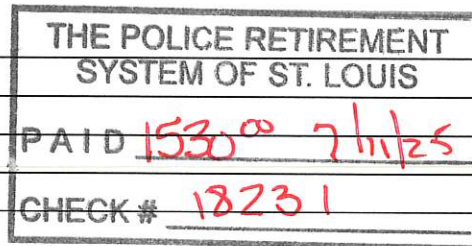 THE POLICE RETIREMENT
SYSTEM OF ST. LOUIS
PAID 1530⁰⁰ 7/11/25
CHECK # 18231